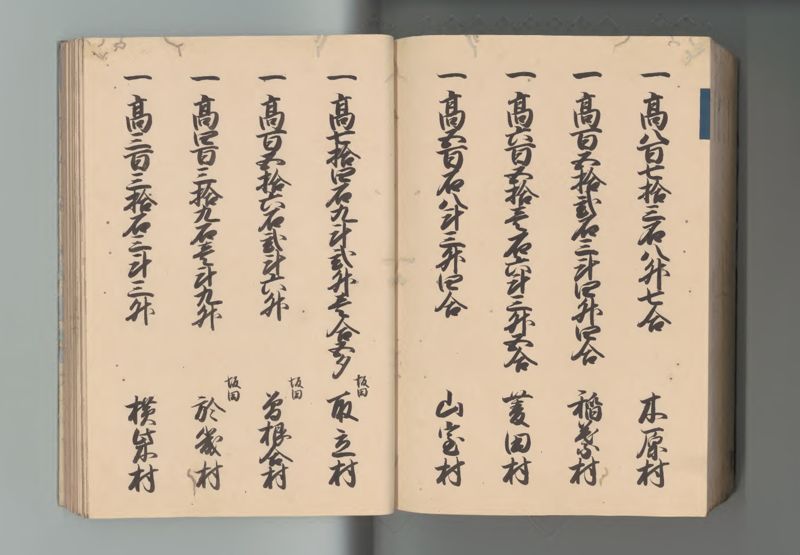 一 高八百七拾三石八升七合 木原村
一 高百五拾弐石三斗四升四合 稲葉村
一 高六百五拾壱石六斗三升五合 菱田村
一 高五百石八斗三升四合 山室村
一 高七拾四石九斗弐升壱合五夕 坂田 取立村
一 高百五拾六石弐斗六升 坂田 曽根合村
一 高四百三拾九石壱斗九升 坂田 於幾村
一 高三百三拾石三斗三升 横柴村